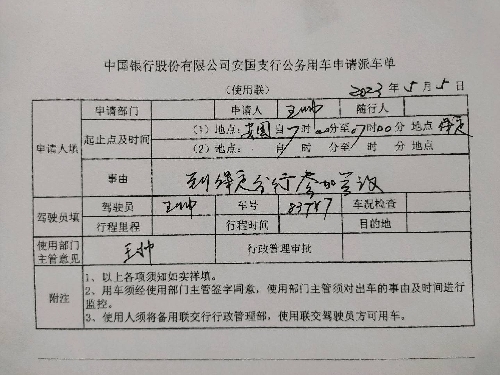 中国银行股份有限公司安国支行公务用车申请派车单
(使用联) 2023 年 5 月 5 日
申请部门 申请人 王帅 随行人
申请人填 起止点及时间 (1) 地点: 安国 自 7 时 00 分至 07 时 00 分 地点 保定
(2) 地点: 自 时 分至 时 分 地点
事由 到保定分行参加会议
驾驶员填 驾驶员 王帅 车号 83747 车况检查
行程里程 行程时间 目的地
使用部门主管意见 王帅 行政管理审批
附注 1、以上各项须知如实祥填。
2、用车须经使用部门主管签字同意，使用部门主管须对出车的事由及时间进行
监控。
3、使用人须将备用联交行行政管理部，使用联交驾驶员方可用车。